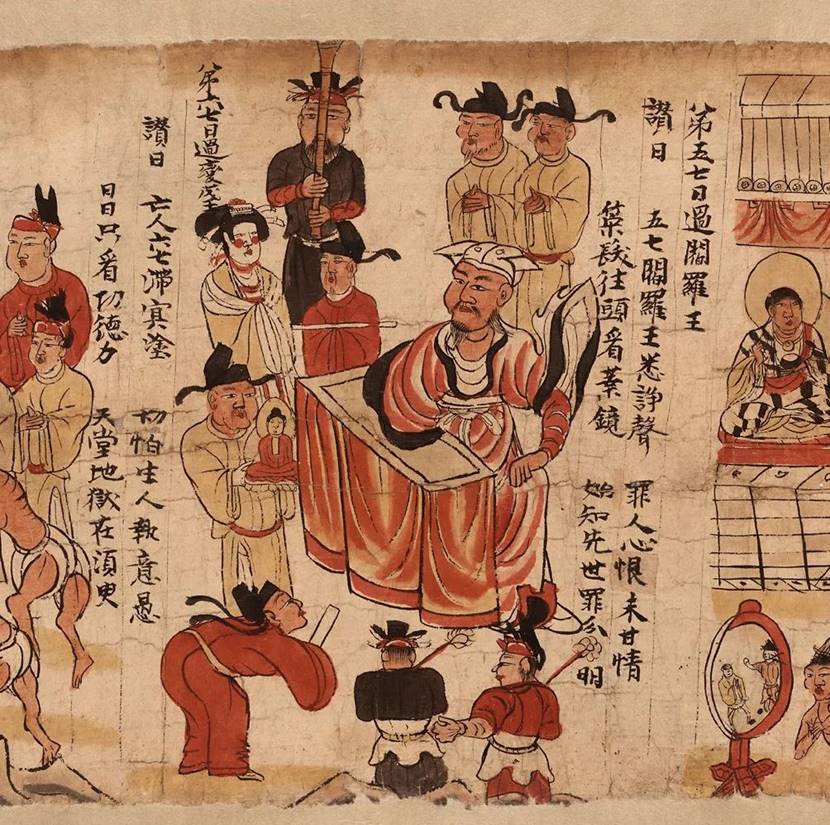 第五七日過閻羅王
讃曰 五七閻羅王悉諍聲 罪人心恨未甘情
策髮往頭看業鏡 始知先世罪分明
第六七日過變成王
讃曰 亡人六七滯冥塗 切怕生人執意愚
日日只看功德力 天堂地獄在須臾